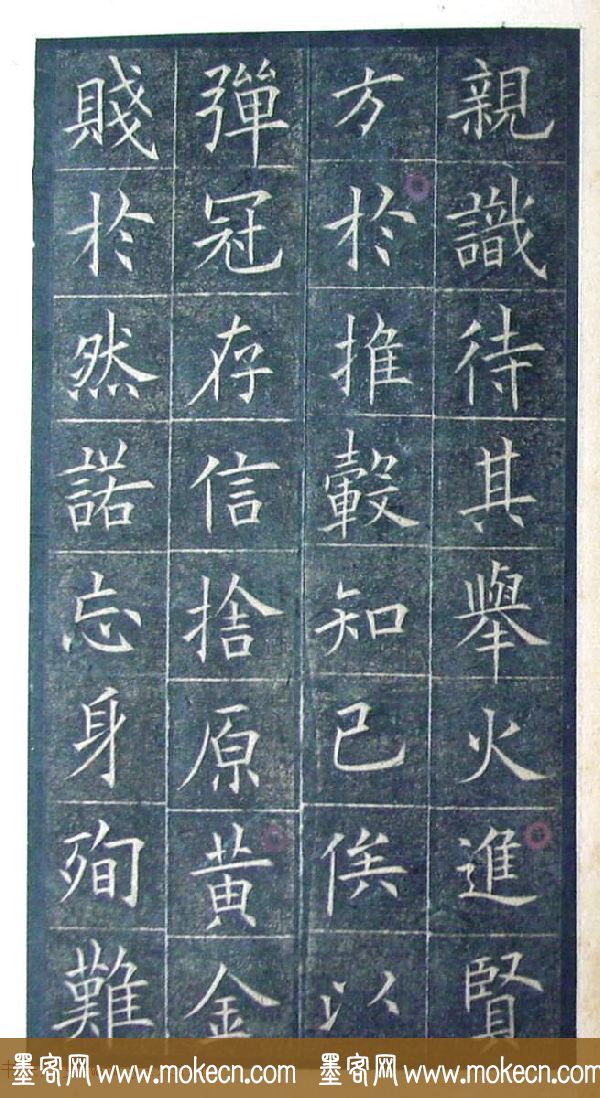 親識待其舉火進賢
方於推轂知己俟以
彈冠存信捨原黄金
賤於然諾忘身殉難
墨客网 www.mokecn.com 墨客网 www.mokecn.com